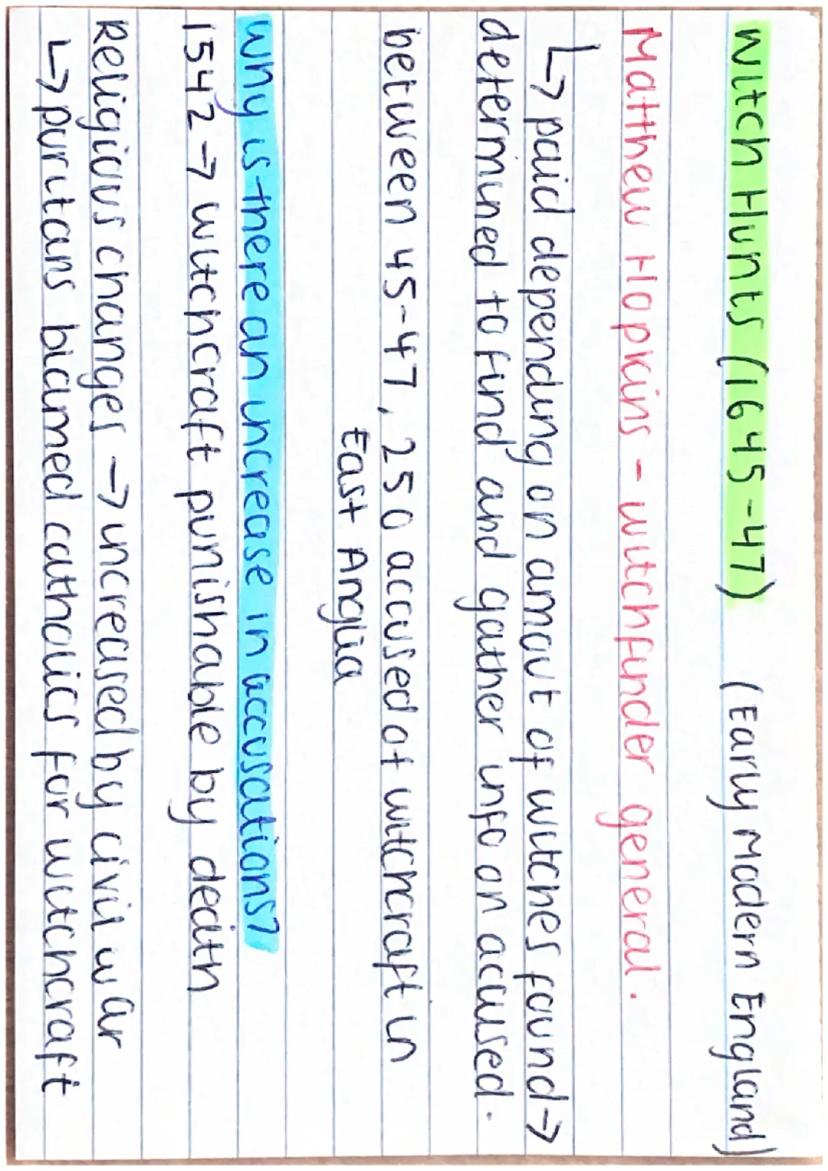 Witch Hunts (1645-47) (Early Modern England)
Matthew Hopkins - witchfinder general.
↳ paid depending on amout of witches found →
determined to find and gather info on accused.
between 45-47, 250 accused of witchcraft in
East Anglia
Why is there an increase in accusations?
1542 → witchcraft punishable by death
Religious changes → increased by civil war
↳ puritans blamed catholics for witchcraft